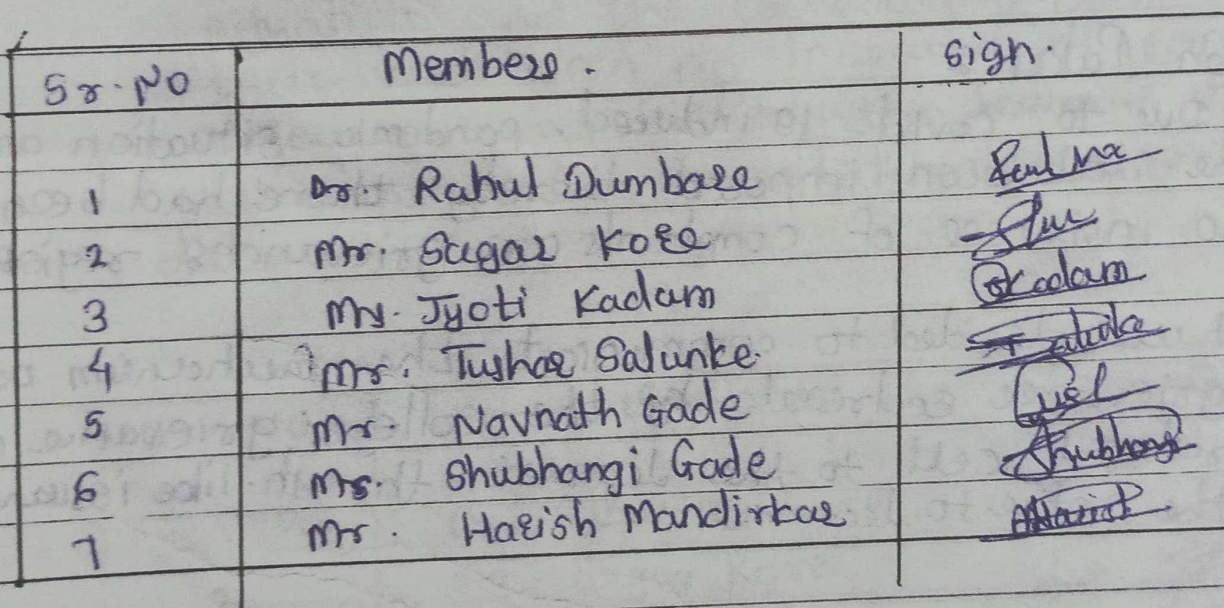 Sr. No Members. Sign.
1 Dr. Rahul Dumbare
2 Mr. Sagar Kore
3 Ms. Jyoti Kadam Kadam
4 Mr. Tushar Salunke
5 Mr. Navnath Gade
6 Ms. Shubhangi Gade Shubhangi
7 Mr. Harish Mandirkar Harish